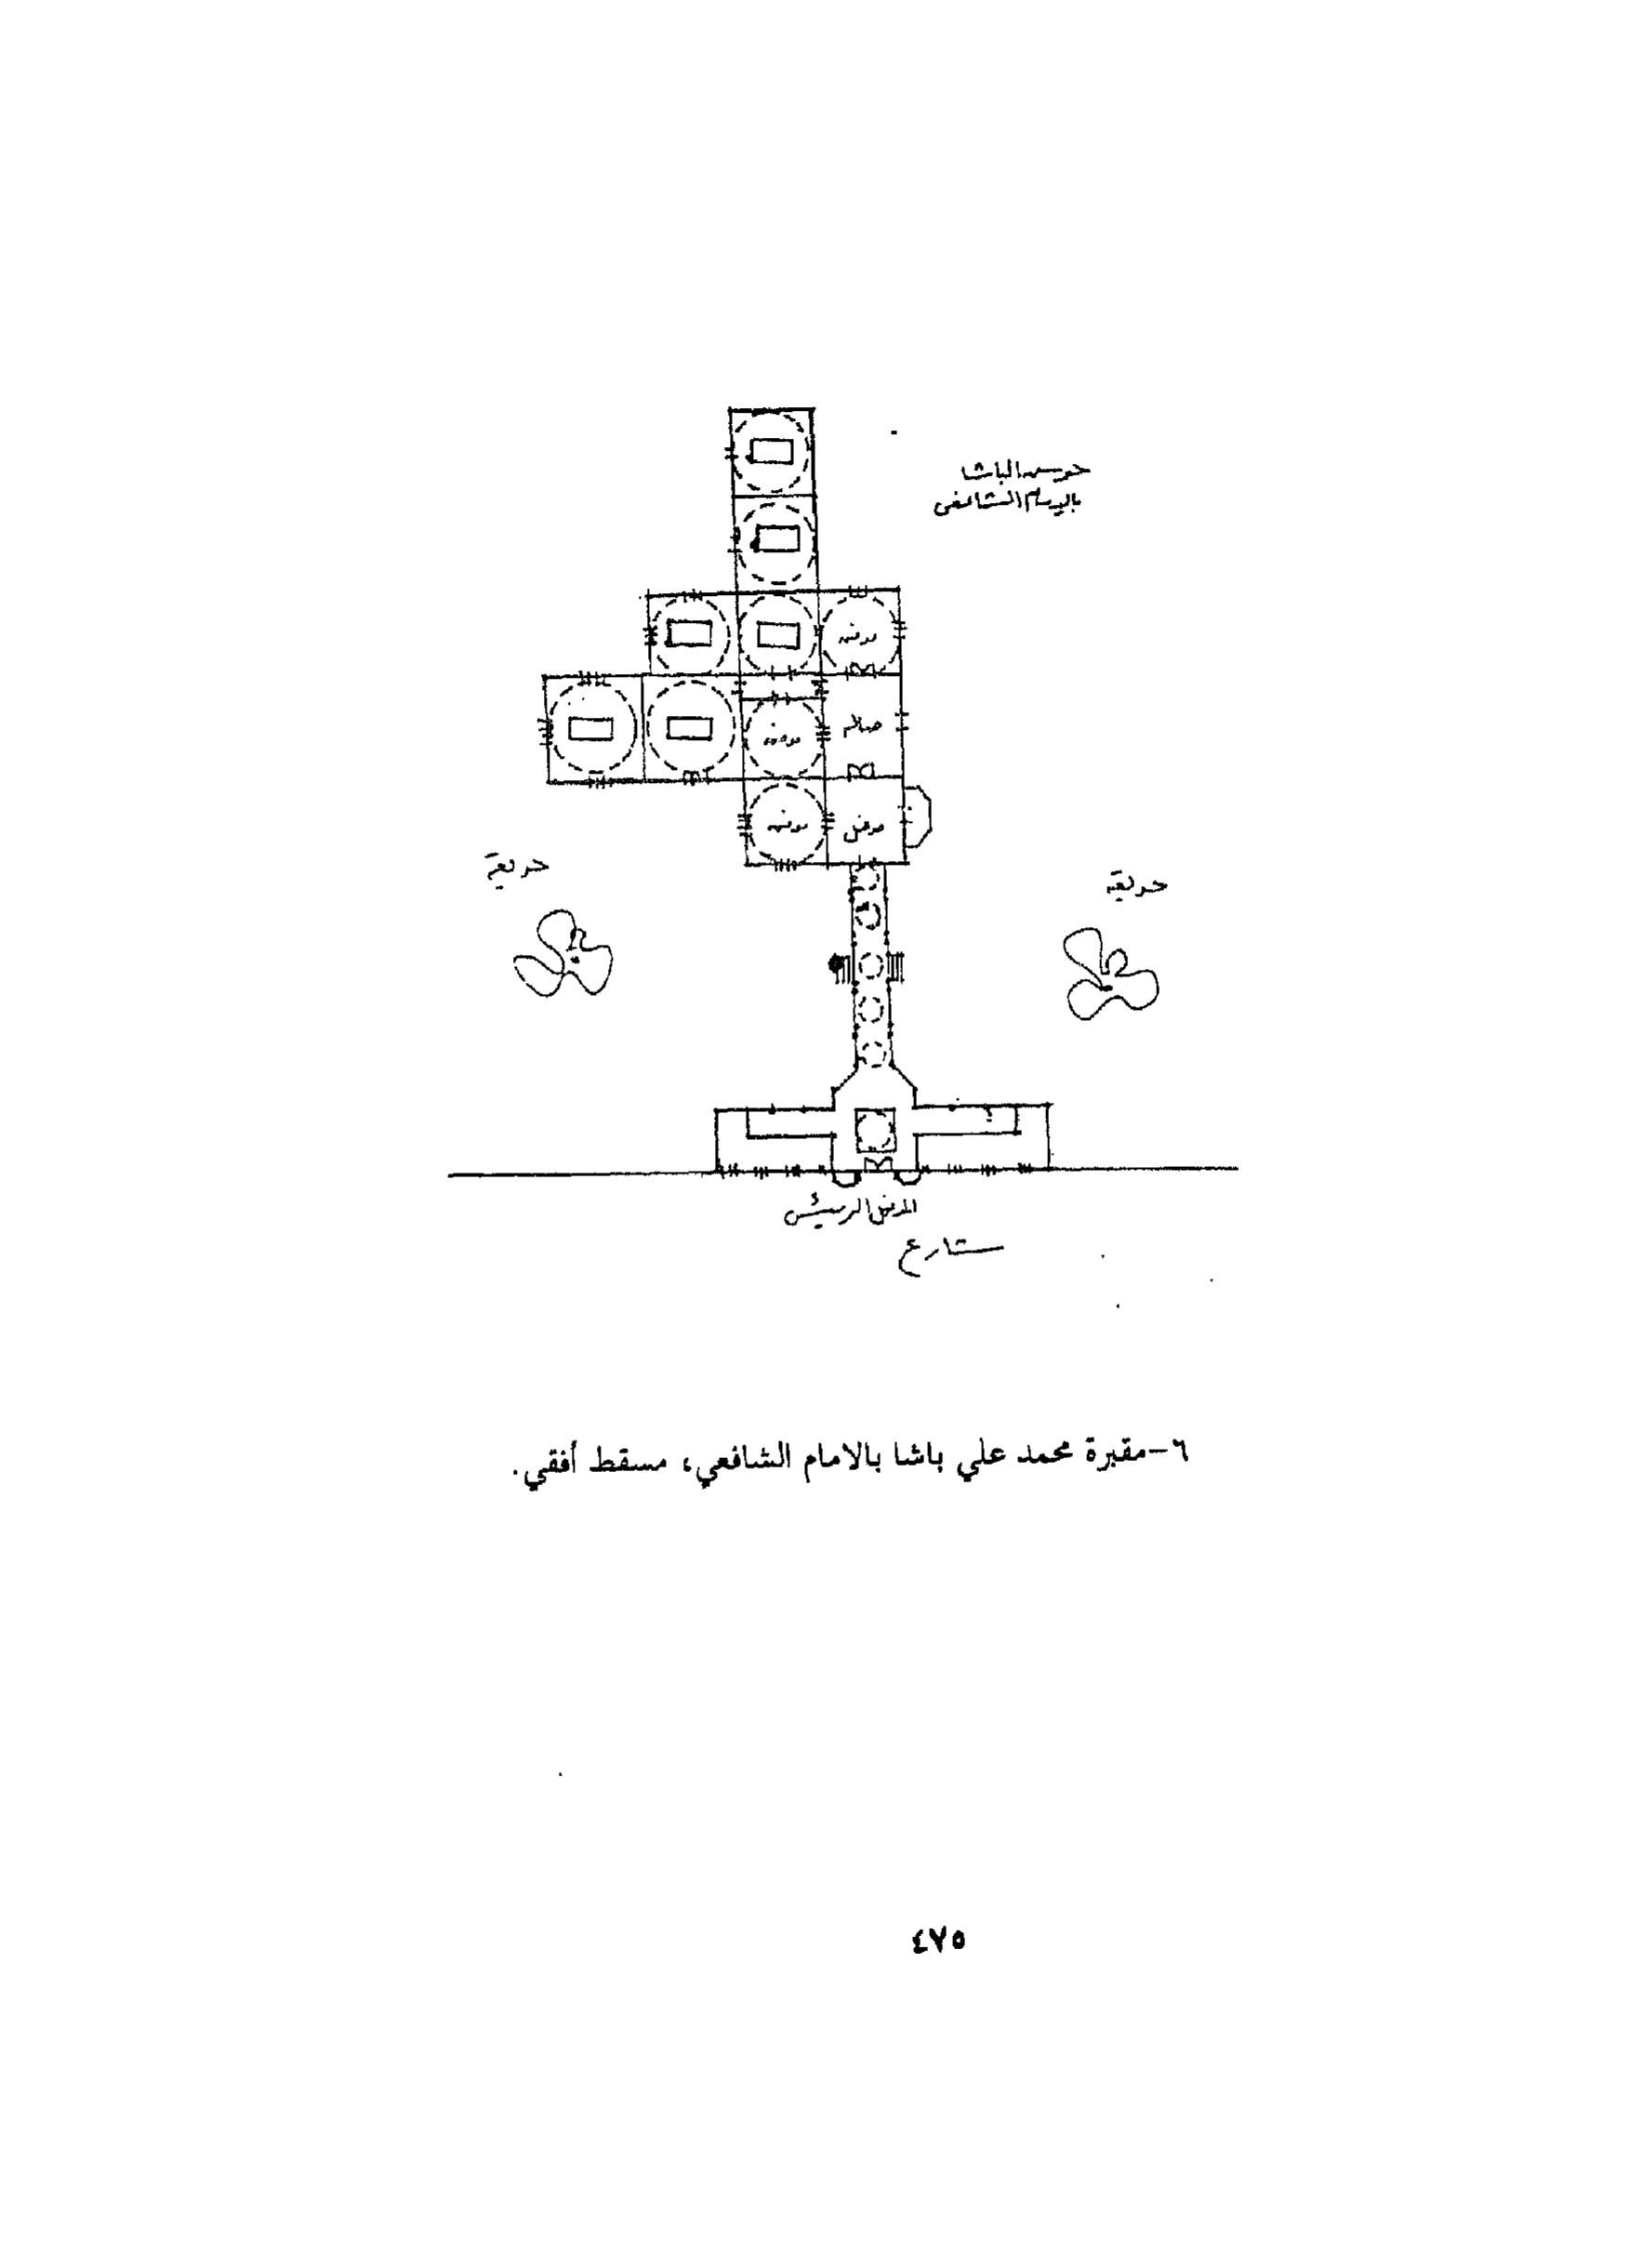 حوش الباشا
بالإمام الشافعى
مدفن
مدفن
صالة
مدفن
مدخل
حديقة
حديقة
المدخل الرئيسى
شارع
٦-مقبرة محمد علي باشا بالامام الشافعي، مسقط أفقي.
٤٧٥